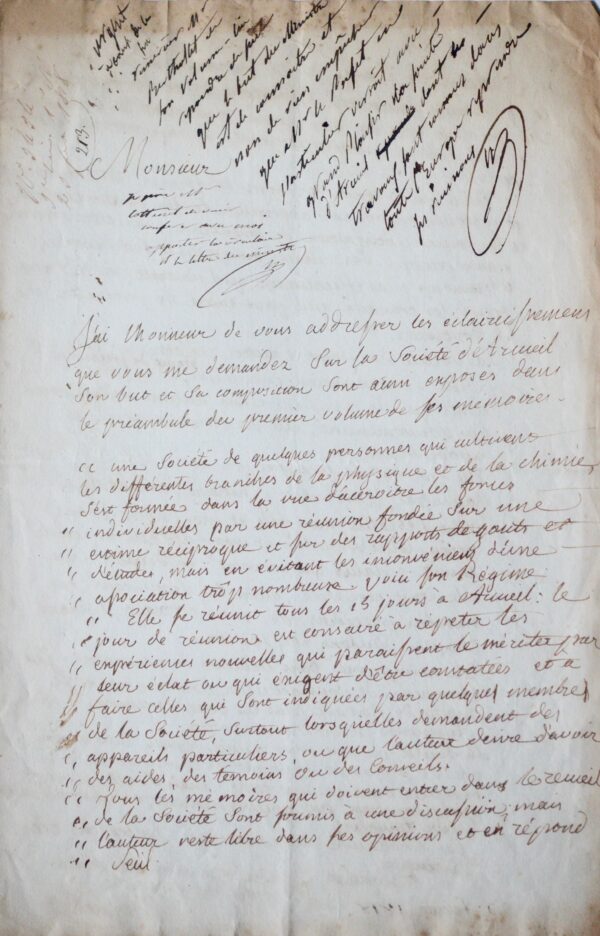 urgent
remercier Mr
Berthollet de
son volume. lui
répondre de plus
que le but du Ministre
est de connoitre et
non de rien empêcher
que Mr le Préfet en
particulier verroit avec
grand plaisir la
d'Arcueil dont les
travaux sont connus dans
toute l'Europe reprendre
ses réunions
213
Monsieur
J'ai l'honneur de vous addresser les éclaircissemens
que vous me demandez sur la Société d'Arcueil
son but et sa composition sont ainsi exposés dans
le préambule du premier volume de ses mémoires.
« une Société de quelques personnes qui cultivent
les différentes branches de la physique et de la chimie,
s'est formée dans la vue d'accroitre les forces
" individuelles par une réunion fondée sur une
" estime réciproque et sur des rapports de gouts et
" d'études, mais en évitant les inconvéniens d'une
" association trop nombreuse voici son Régime
" Elle se réunit tous les 15 jours à Arcueil : le
" jour de réunion est consacré à répéter les
" expériences nouvelles qui paraissent le mériter par
" leur éclat ou qui exigent d'être constatées et à
" faire celles qui sont indiquées par quelques membres
" de la Société, surtout lorsqu'elles demandent des
" appareils particuliers, ou que l'auteur desire d'avoir
" des aides, des temoins ou des conseils.
" Tous les mémoires qui doivent entrer dans le recueil
" de la Société sont soumis à une discussion, mais
" l'auteur reste libre dans ses opinions et en répond
" seul